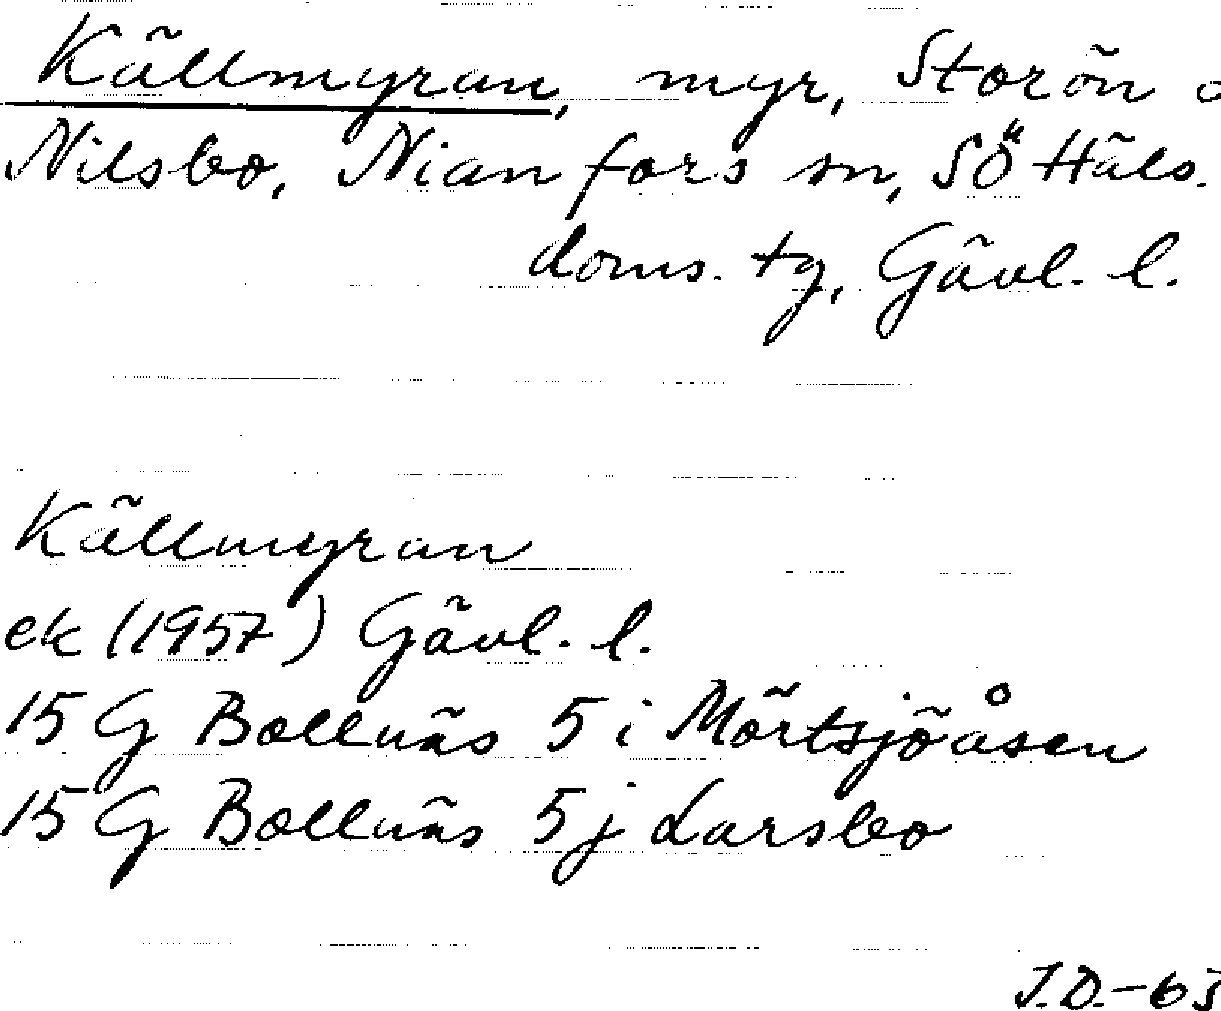 Källmyran, myr, Storön o
Nilsbo, Nianfors sn, SÖ Häls.
doms. tg, Gävl. l.
Källmyran
ek (1957) Gävl. l.
15 G Bollnäs 5 i Mörtsjöåsen
15 G Bollnäs 5 j Larsbo
J.D.-63